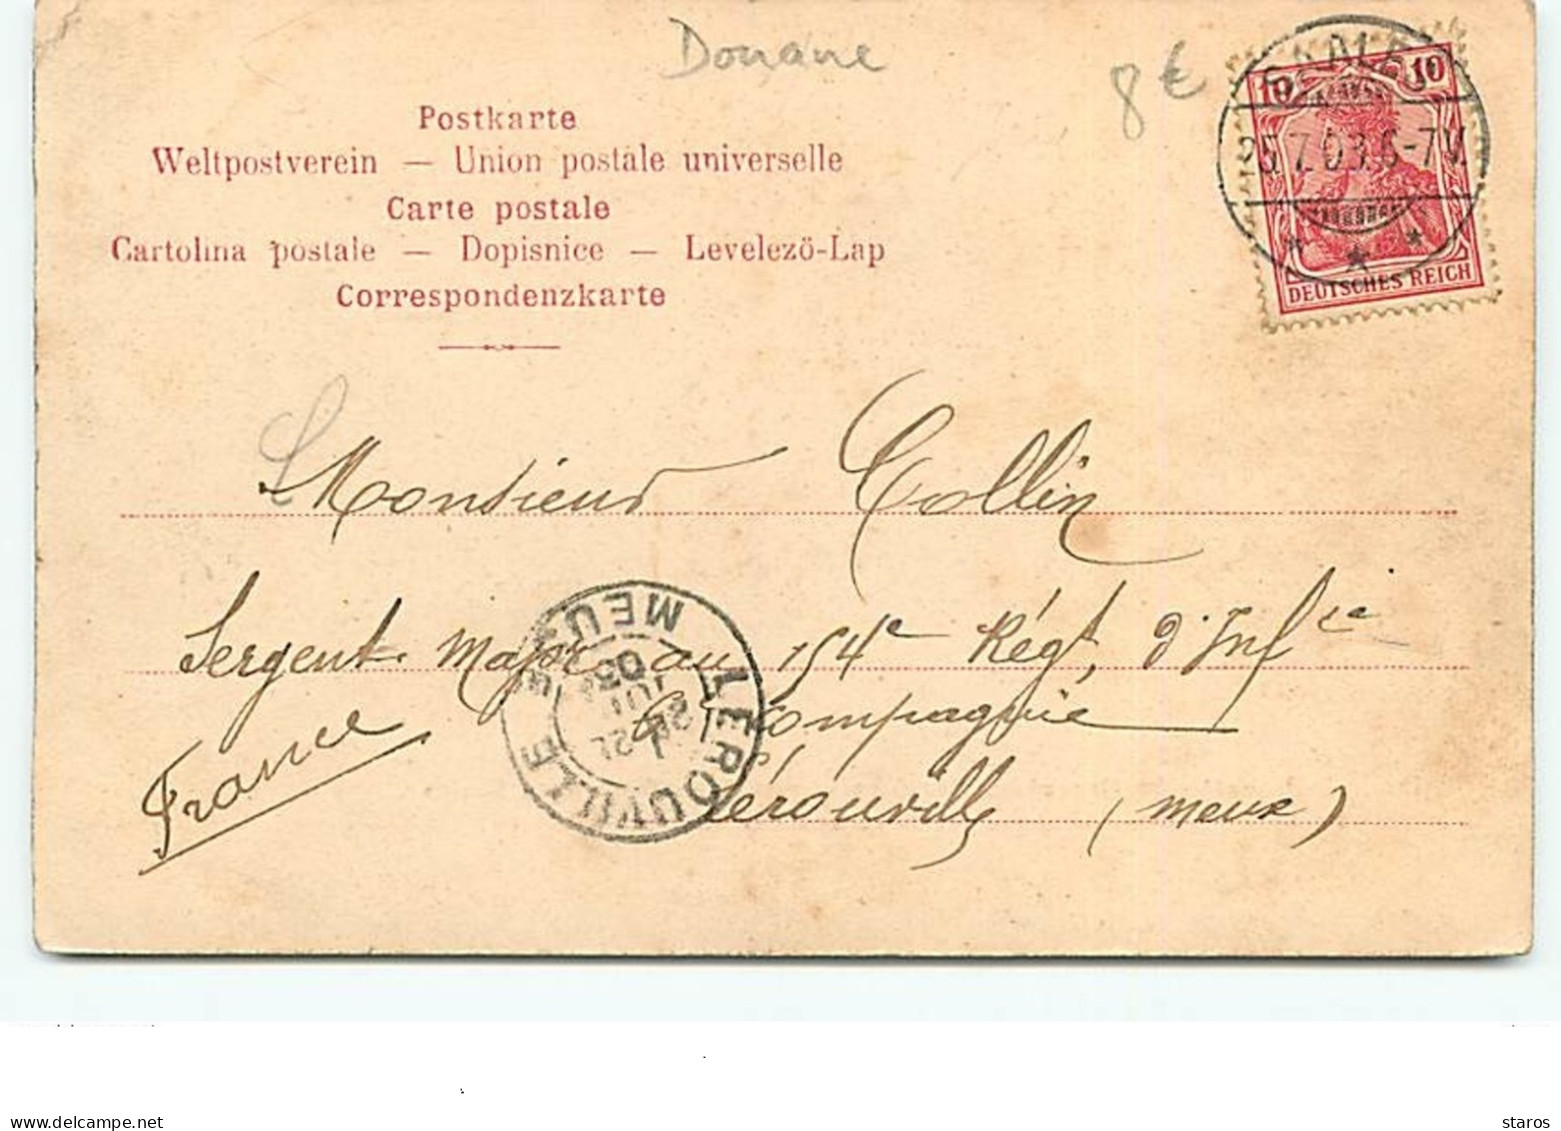 Douane
8€
Postkarte
Weltpostverein — Union postale universelle
Carte postale
Cartolina postale — Dopisnice — Levelező-Lap
Correspondenzkarte
10 10
25.7.03.6-7V.
DEUTSCHES REICH
Monsieur Collin
Sergent Major au 154e Régt, d'Infie
Compagnie
France
Lérouville (Meuse)
LEROUVILLE
MEUSE
JUIL
03
delcampe.net
staros